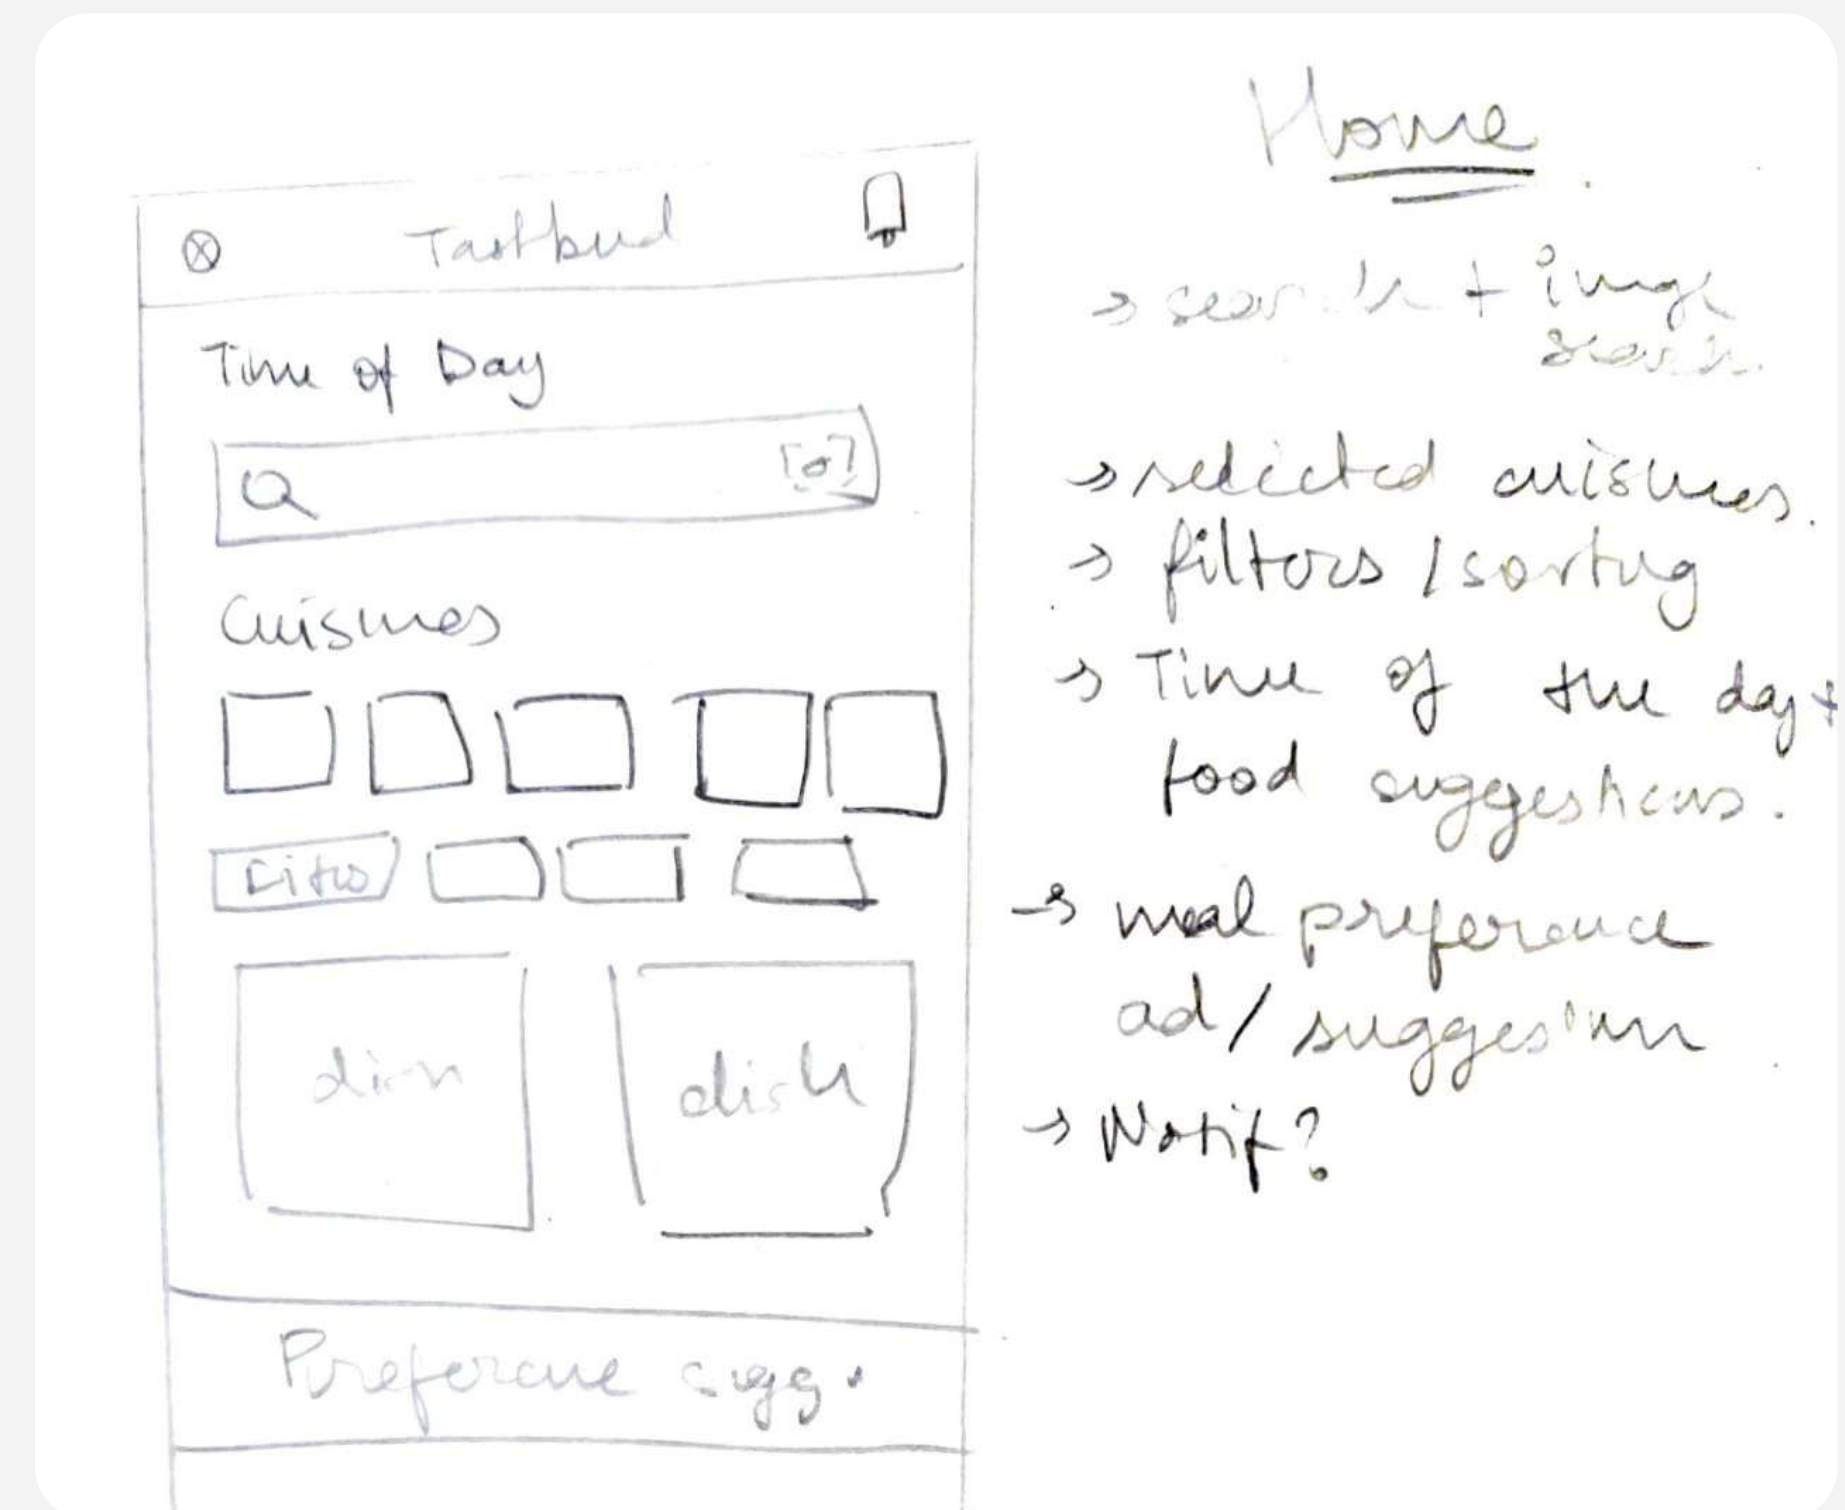 Tastbud
Time of Day
Cuisines
dish
dish
Preference sugg.
Home
→ search + image
search.
→ selected cuisines.
→ filters / sorting
→ Time of the day +
food suggestions.
→ meal preference
ad / suggestion
→ Notif?